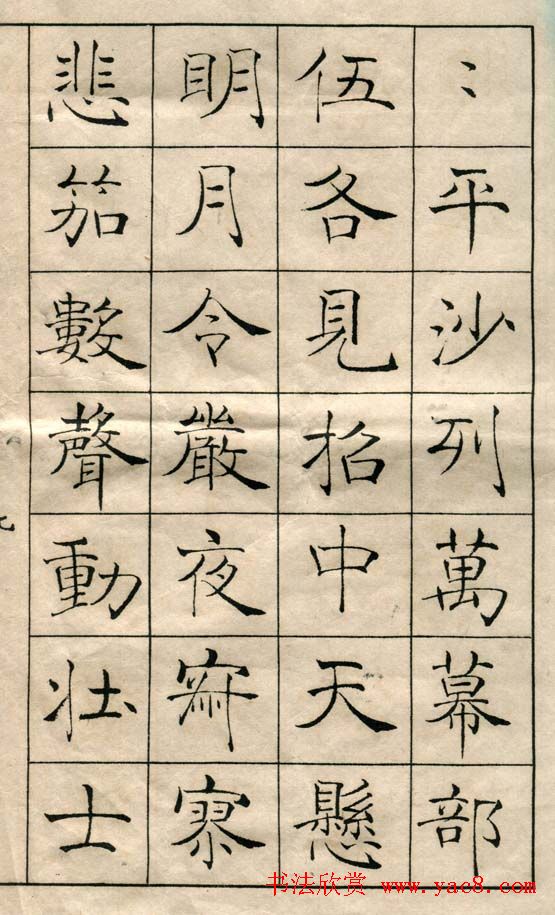 〻平沙列萬幕部
伍各見招中天懸
明月令嚴夜寂寥
悲笳數聲動壯士
书法欣赏 www.yac8.com